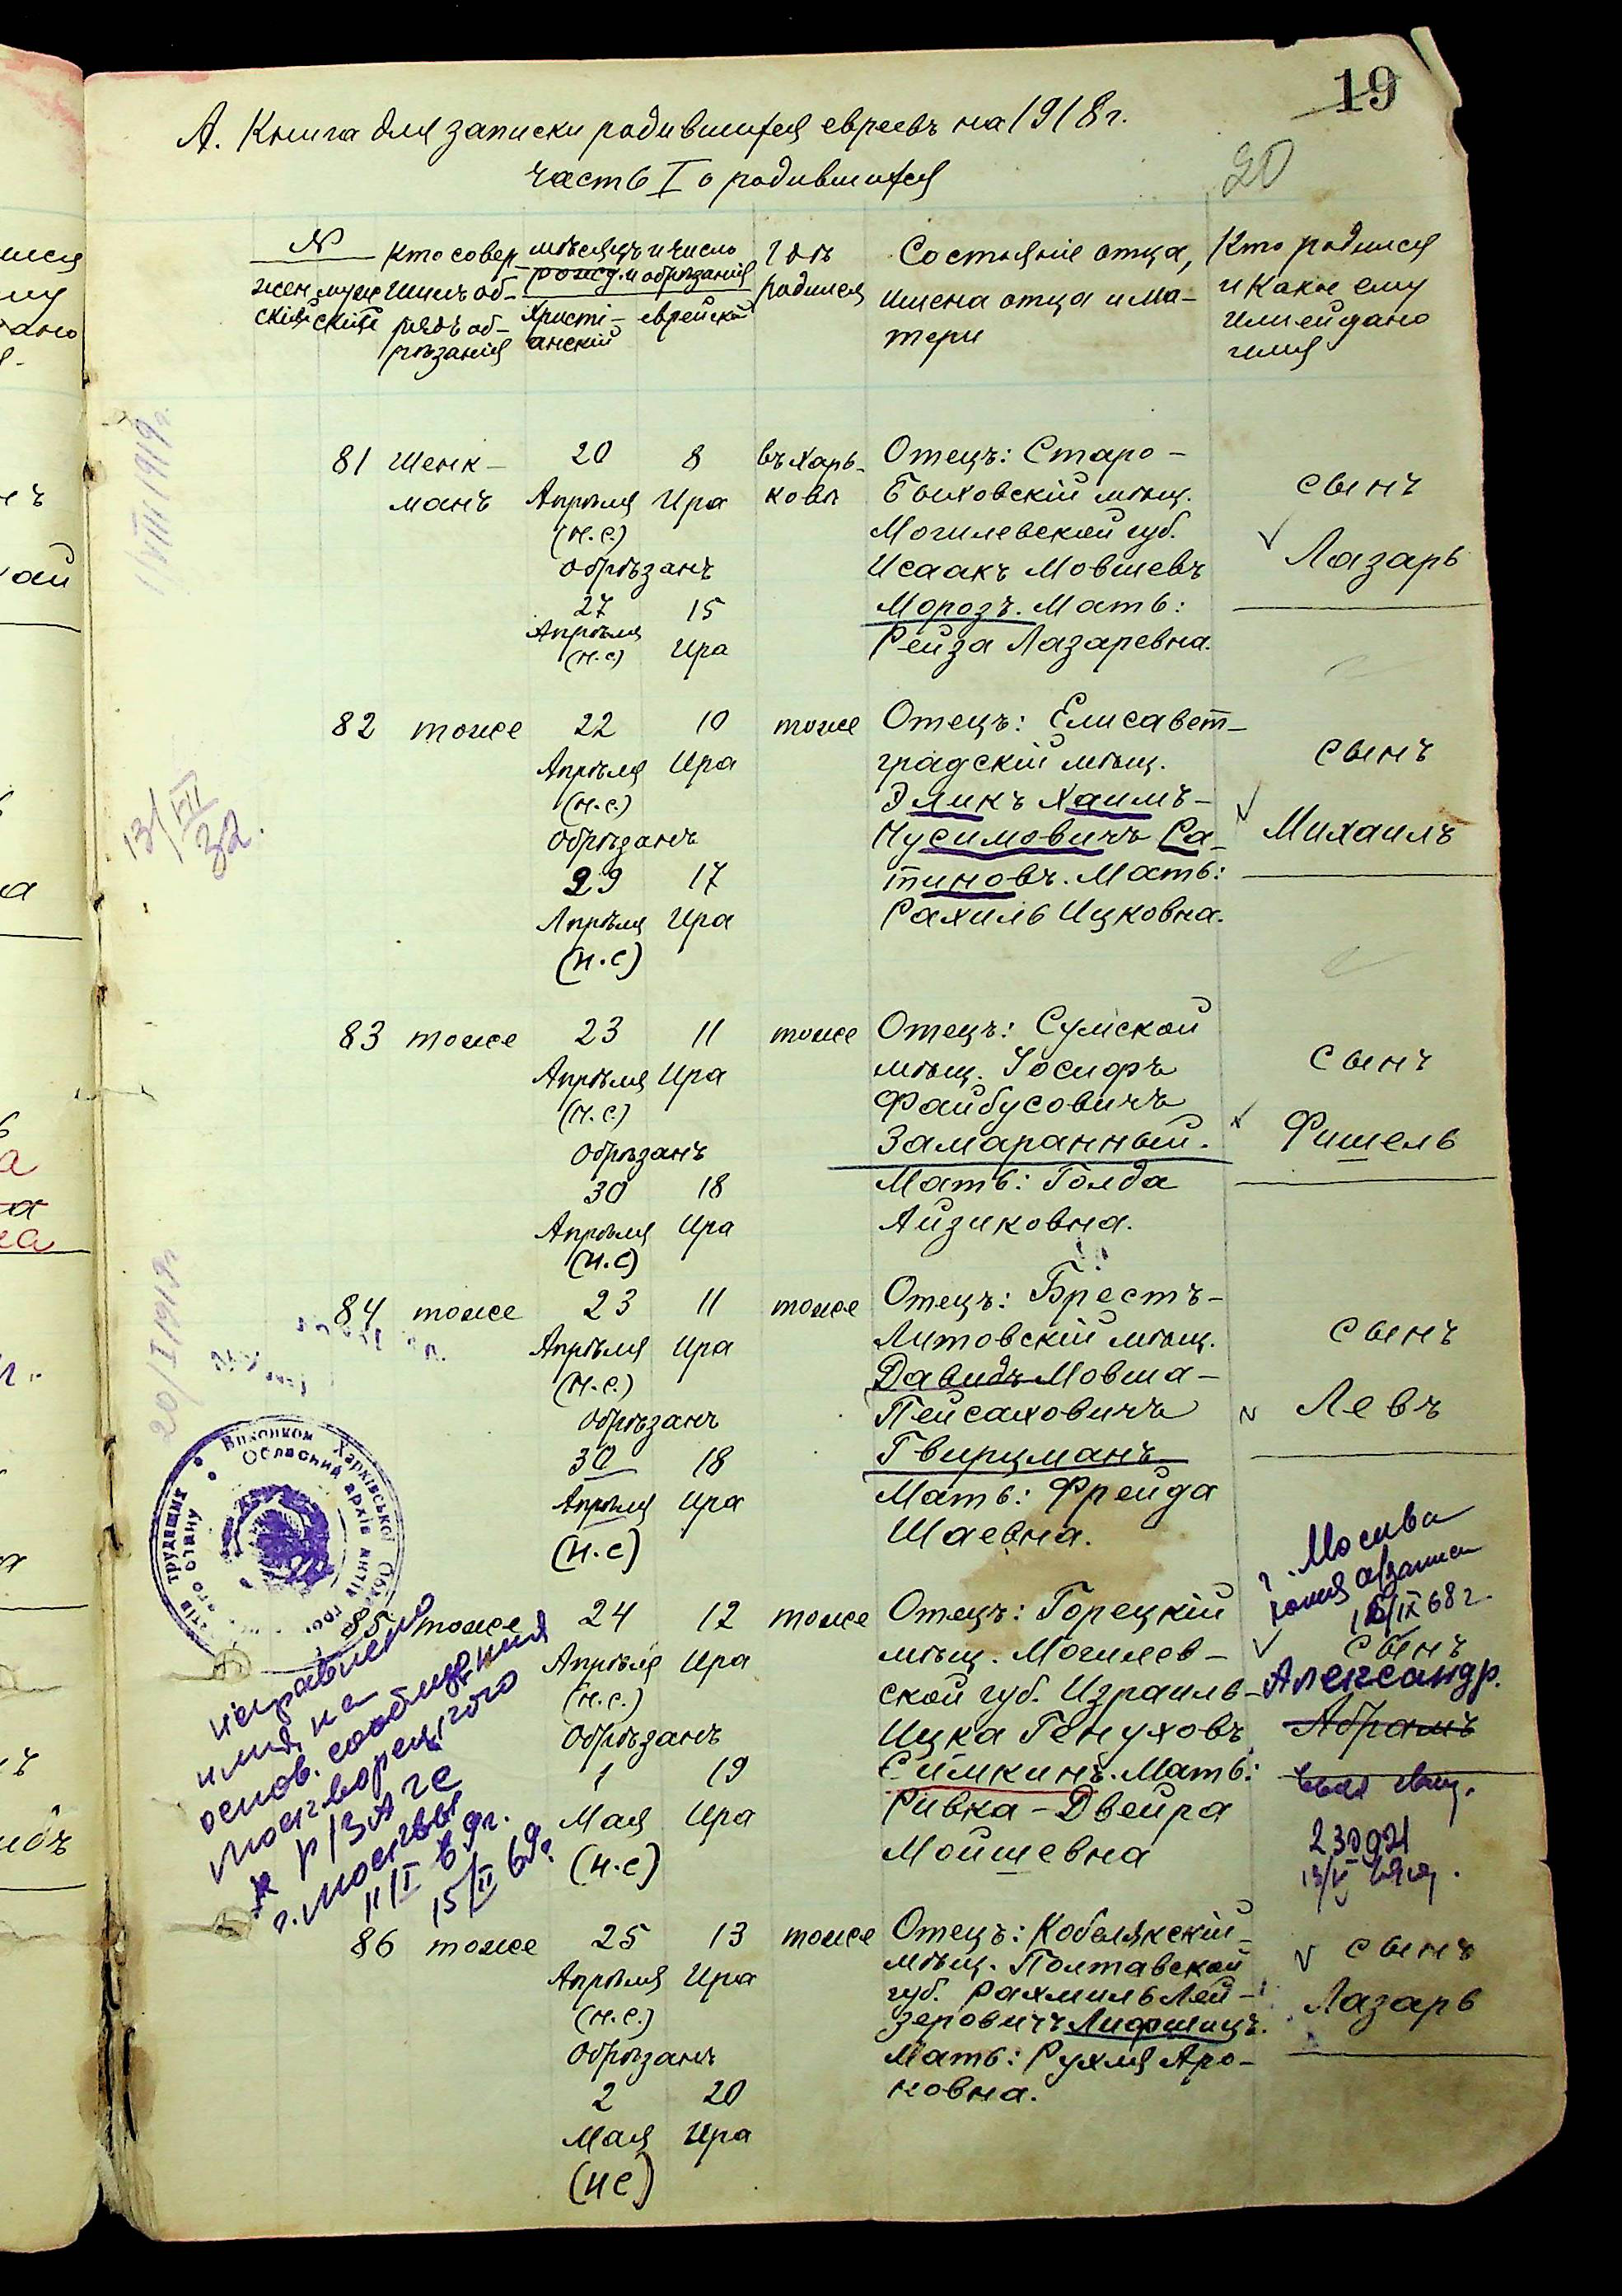 19
20
А. Книга для записки родившихся евреевъ на 1918 г.
часть I о родившихся
№
женскій
мужескій
Кто совершилъ обрядъ обрѣзанія
мѣсяцъ и число рожд. и обрѣзанія
Христіанскій
еврейскій
гдѣ родился
Состояніе отца, имена отца и матери
Кто родился и какое ему или ей дано имя
1/VIII 1919 г.
81 Шенк-
манъ
20 8
Апрѣля Ира
(н.с.)
обрѣзанъ
27 15
Апрѣля Ира
(н.с)
въ Харь-
ковѣ
Отецъ: Старо-
Быховскій мѣщ.
Могилевской губ.
Исаакъ Мовшевъ
Морозъ. Мать:
Рейза Лазаревна.
сынъ
Лазарь
82 тоже
22 10
Апрѣля Ира
(н.с.)
Обрѣзанъ
29 17
Апрѣля Ира
(н.с)
тоже
Отецъ: Елисавет-
градскій мѣщ.
Эликъ Хаимъ-
Нусимовичъ Са-
тиновъ. Мать:
Рахиль Ицковна.
сынъ
Михаилъ
13/VII
32.
83 тоже
23 11
Апрѣля Ира
(н.с.)
Обрѣзанъ
30 18
Апрѣля Ира
(н.с)
тоже
Отецъ: Сумской
мѣщ. Іосифъ
Файбусовичъ
Замаранный.
Мать: Голда
Айзиковна.
сынъ
Фишель
84 тоже
23 11
Апрѣля Ира
(н.с.)
Обрѣзанъ
30 18
Апрѣля Ира
(н.с)
тоже
Отецъ: Брестъ-
Литовскій мѣщ.
Давидъ-Мовша-
Пейсаховичъ
Гвирцманъ
Мать: Фрейда
Шаевна.
сынъ
Левъ
Виконком Харківської
Обласний архів актів
трудящих
85 тоже
24 12
Апрѣля Ира
(н.с.)
Обрѣзанъ
1 19
Мая Ира
(н.с)
тоже
Отецъ: Горецкій
мѣщ. Могилев-
ской губ. Израиль-
Ицка Генуховъ
Симкинъ. Мать:
Ривка-Двейра
Мойшевна
г. Москва
копия а/записи
IX 68 г.
сынъ
Александр.
Абрамъ
исправлено
имя на
основ. сообщения
Москворецкого
р/ЗАГС
г. Москвы
11/I 69 г.
15/II 69 г.
86 тоже
25 13
Апрѣля Ира
(н.с.)
Обрѣзанъ
2 20
Мая Ира
(нс)
тоже
Отецъ: Кобелякскій
мѣщ. Полтавской
губ. Рахмиль Лей-
зеровичъ Лифшицъ.
Мать: Рухля Аро-
новна.
сынъ
Лазарь